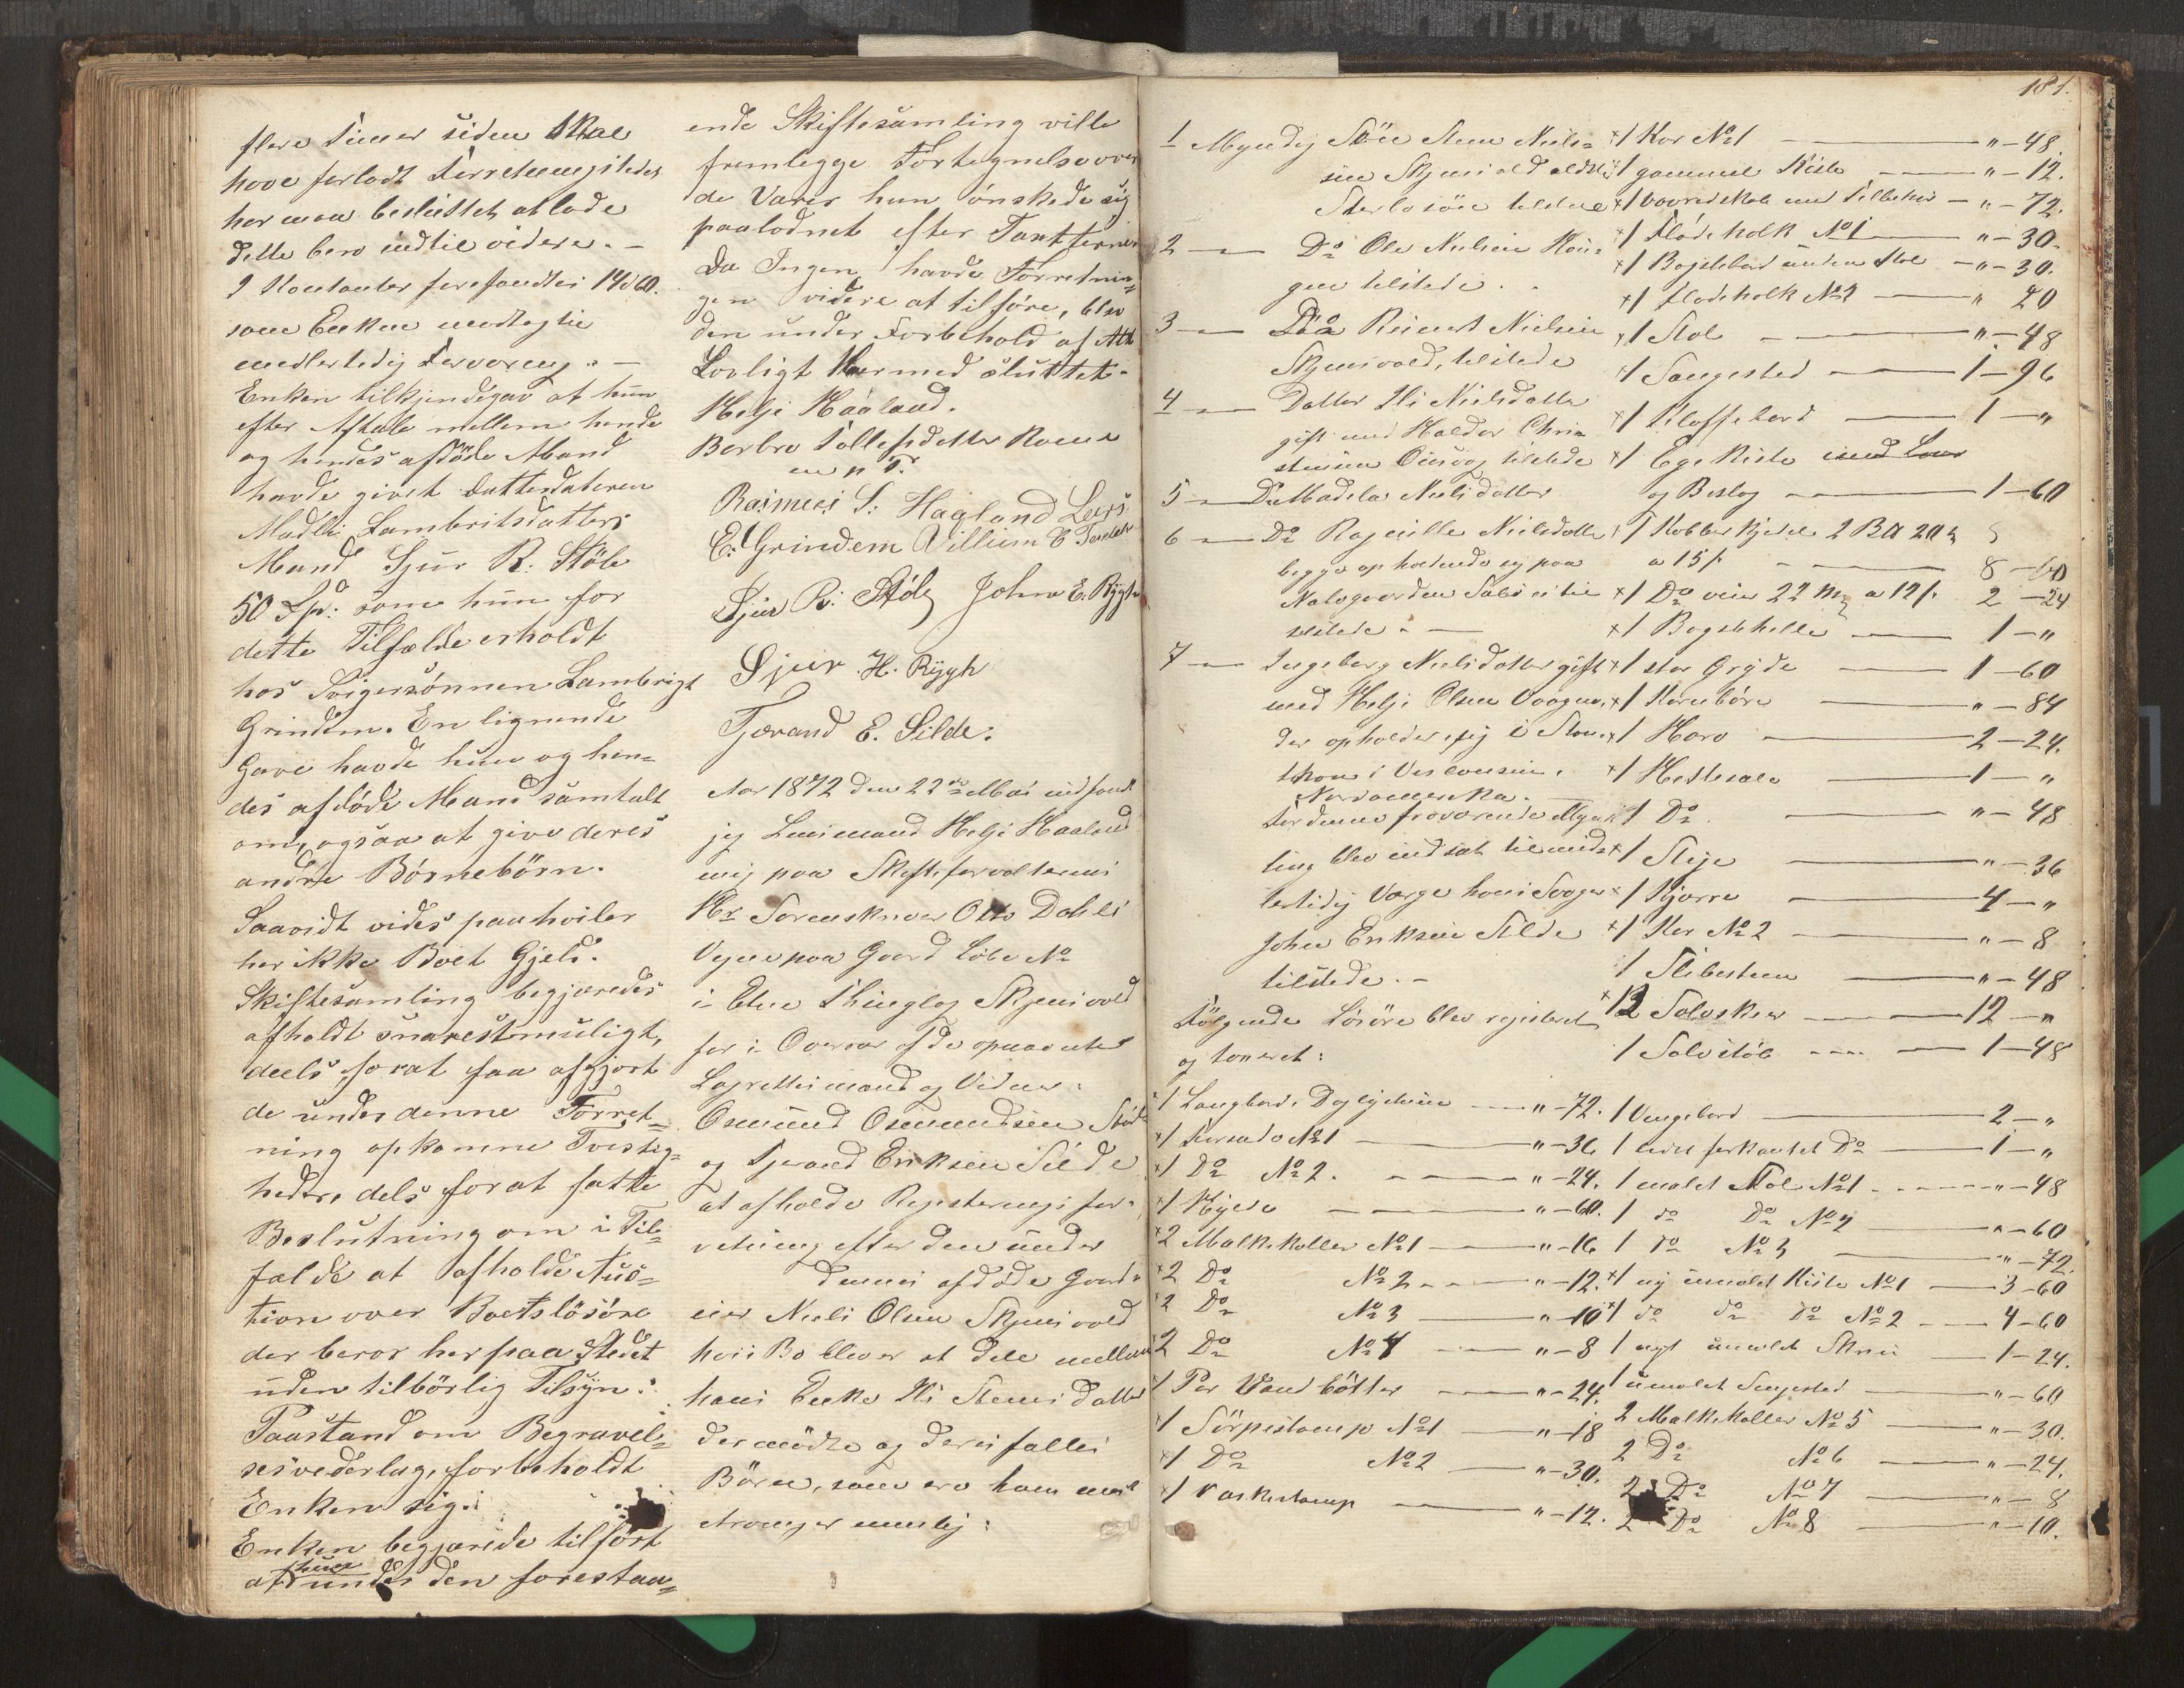 flere Timer siden skal
have forladt Forretningsstedet
har man besluttet at lade
dette bero indtil videre. –
I Kontanter forefandtes 14 60.
som Enken modtog til
midlertidig Forvaring. –
Enken tilkjendegav at hun
efter Aftale mellem hende
og hendes afdöde Mand
havde givet Datterdateren
Madli Lambritsdatters
Mand Sjur R. Stöle
50 Spd: som hun for
dette Tilfælde erholdt
hos Svigersönnen Lambrigt
Grindem. En lignende
Gave havde hun og hen=
des afdöde Mand samtalt
om, ogsaa at give deres
andre Börnebörn.
Saavidt vides paahviler
her ikke Boet Gjeld.
Skiftesamling begjæredes
afholdt snarestmuligt,
deels for at faa afgjort
de under denne Forret=
ning opkomne Tvistig=
heder, dels for at fatte
Beslutning om i Til=
fælde at afholde Auc=
tion over Boets lösöre
der beror her paa Stedet
uden tilbörlig Tilsyn.
Paastand om Begravel=
sesvederlag, forbeholdt
Enken sig.
Enken begjærede tilfört
at hun under den forestaa=
ende Skiftesamling ville
fremlegge Fortegnelse over
de Varer hun önskede sig
paalodnet efter Taxtterne
Da Ingen havde Forretnin=
gen videre at tilföre, blev
den under Forbehold af Alt
Lovligt Hermed sluttet.
Helje Haaland.
Berbro Tollefsdatter
m p T.
Rasmus S: Hagland Lars
E. Grindem Villum E
Sjur R: Stöle John E. Rygh
Sjur H. Rygh
Tjerand E. Silde.
Aar 1872 den 22de Mai indfandt
jeg Lensmand Helje Haaland
mig paa Skifteforvalterens
Hr Sorenskriver Otto Dahls
Vegne paa Gaard Löbe No
i Etne Thinglag Skjensvold
for i Overvær af de opnævnte
Lagrettesmænd og Vidner:
Osmund Osmundsen
og Tjerand Eriksen Silde
at afholde Registreringsfor=
retning efter den under
dennes afdöde Gaard=
eier Niels Olsen Skjensvold
hvis Bo bliver at dele mellem
hans Enke Ili Steensdatter
der mödte og deres fælles
Börn, som ere ham
Arvinger nemlig:
181.
1 Myndig Sön Steen Niel=
sen Skjensvold
tilstede
2 — Do Ole Nielsen Hau=
gen tilstede.
3 — Do Reinert Nielsen
Skjensvold, tilstede
4 — Datter Ili Nielsdatter
gift med Haldor Chri=
stensen tilstede
5 — Do Madela Nielsdatter
6 — Do Ragnille Nielsdatter
begge opholdende sig paa
tilstede. —
7 — Ingeborg Nielsdatter gift
med Helje Olsen
der opholder sig i
Nordamerika. —
For denne fraværende Myn=
ling blev indsat til mid=
lertidig Værge hans Svoger
John Eriksen Silde
tilstede. –
Fölgende Lösöre blev registreret
og taxeret:
1 Langbord i Daglystuen — „ -72.
1 No 1 — „ -36
1 Do No 2. — „ -24.
1 Hylde — „ -60.
2 Malkekoller No 1 — „ -16
2 Do No 2 — „ -12.
2 Do No 3 — „ -10
2 Do No 4 — „ -8
1 Par Vandbötter — „ -24.
1 Sörpestamp No 1 — „ -18
1 Do No 2 — „ -30.
1 Vaskestamp — „ -12.
1 Kar No 1 — „ -48.
1 gammel Kiste — „ -12.
1 — „ -72.
1 Flödeholk No 1 — „ -30.
1 Bagstebord uden — „ -30.
1 Flödeholk No 2 — „ 20
1 Stol — „ -48
1 Sengested — 1 -96
1 Klaffebord — 1 - „
1 Ege Kiste
og Beslag — 1 -60
1 Kobberkjedel
a 15 s. — 8 -60
1 Do veier 22 a 12 s. 2 -24
1 Bagstehelle — 1 - „
1 stor Gryde — 1 -60
1 — „ -84
1 Harv — 2 -24.
1 Hestesale — 1 - „
1 Do — „ -48
1 Stige — „ -36
1 Kjærre — 4 - „
1 Kar No 2 — „ -8
1 Slibesteen — „ -48
12 Sölvskeer — 12 - „
1 Sölvstöb — 1 -48
1 Vengebord — 2 - „
1 lidet firkantet Do — 1 - „
1 malet Stol No 1 — „ -48
1 do Do No 2 — „ -60
1 do No 3 — „ -72.
1 ny umalet Kiste No 1 — 3 -60
1 do do do No 2 — 4 -60
1 nyt umalet Skrin — 1 -24.
1 umalet Sengested — „ -60
2 Malkekoller No 5 — „ -30.
2 Do No 6 — „ -24.
2 Do No 7 — „ - 8
2 Do No 8 — „ -10.